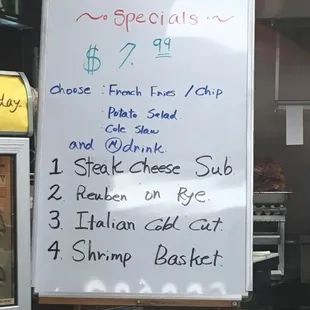 ~ Specials ~
$ 7.99
choose : French Fries / Chip
Potato Salad
Cole Slaw
and Ⓜ drink
1. Steak Cheese Sub
2. Reuben on Rye.
3. Italian Cold Cut.
4. Shrimp Basket.
day.